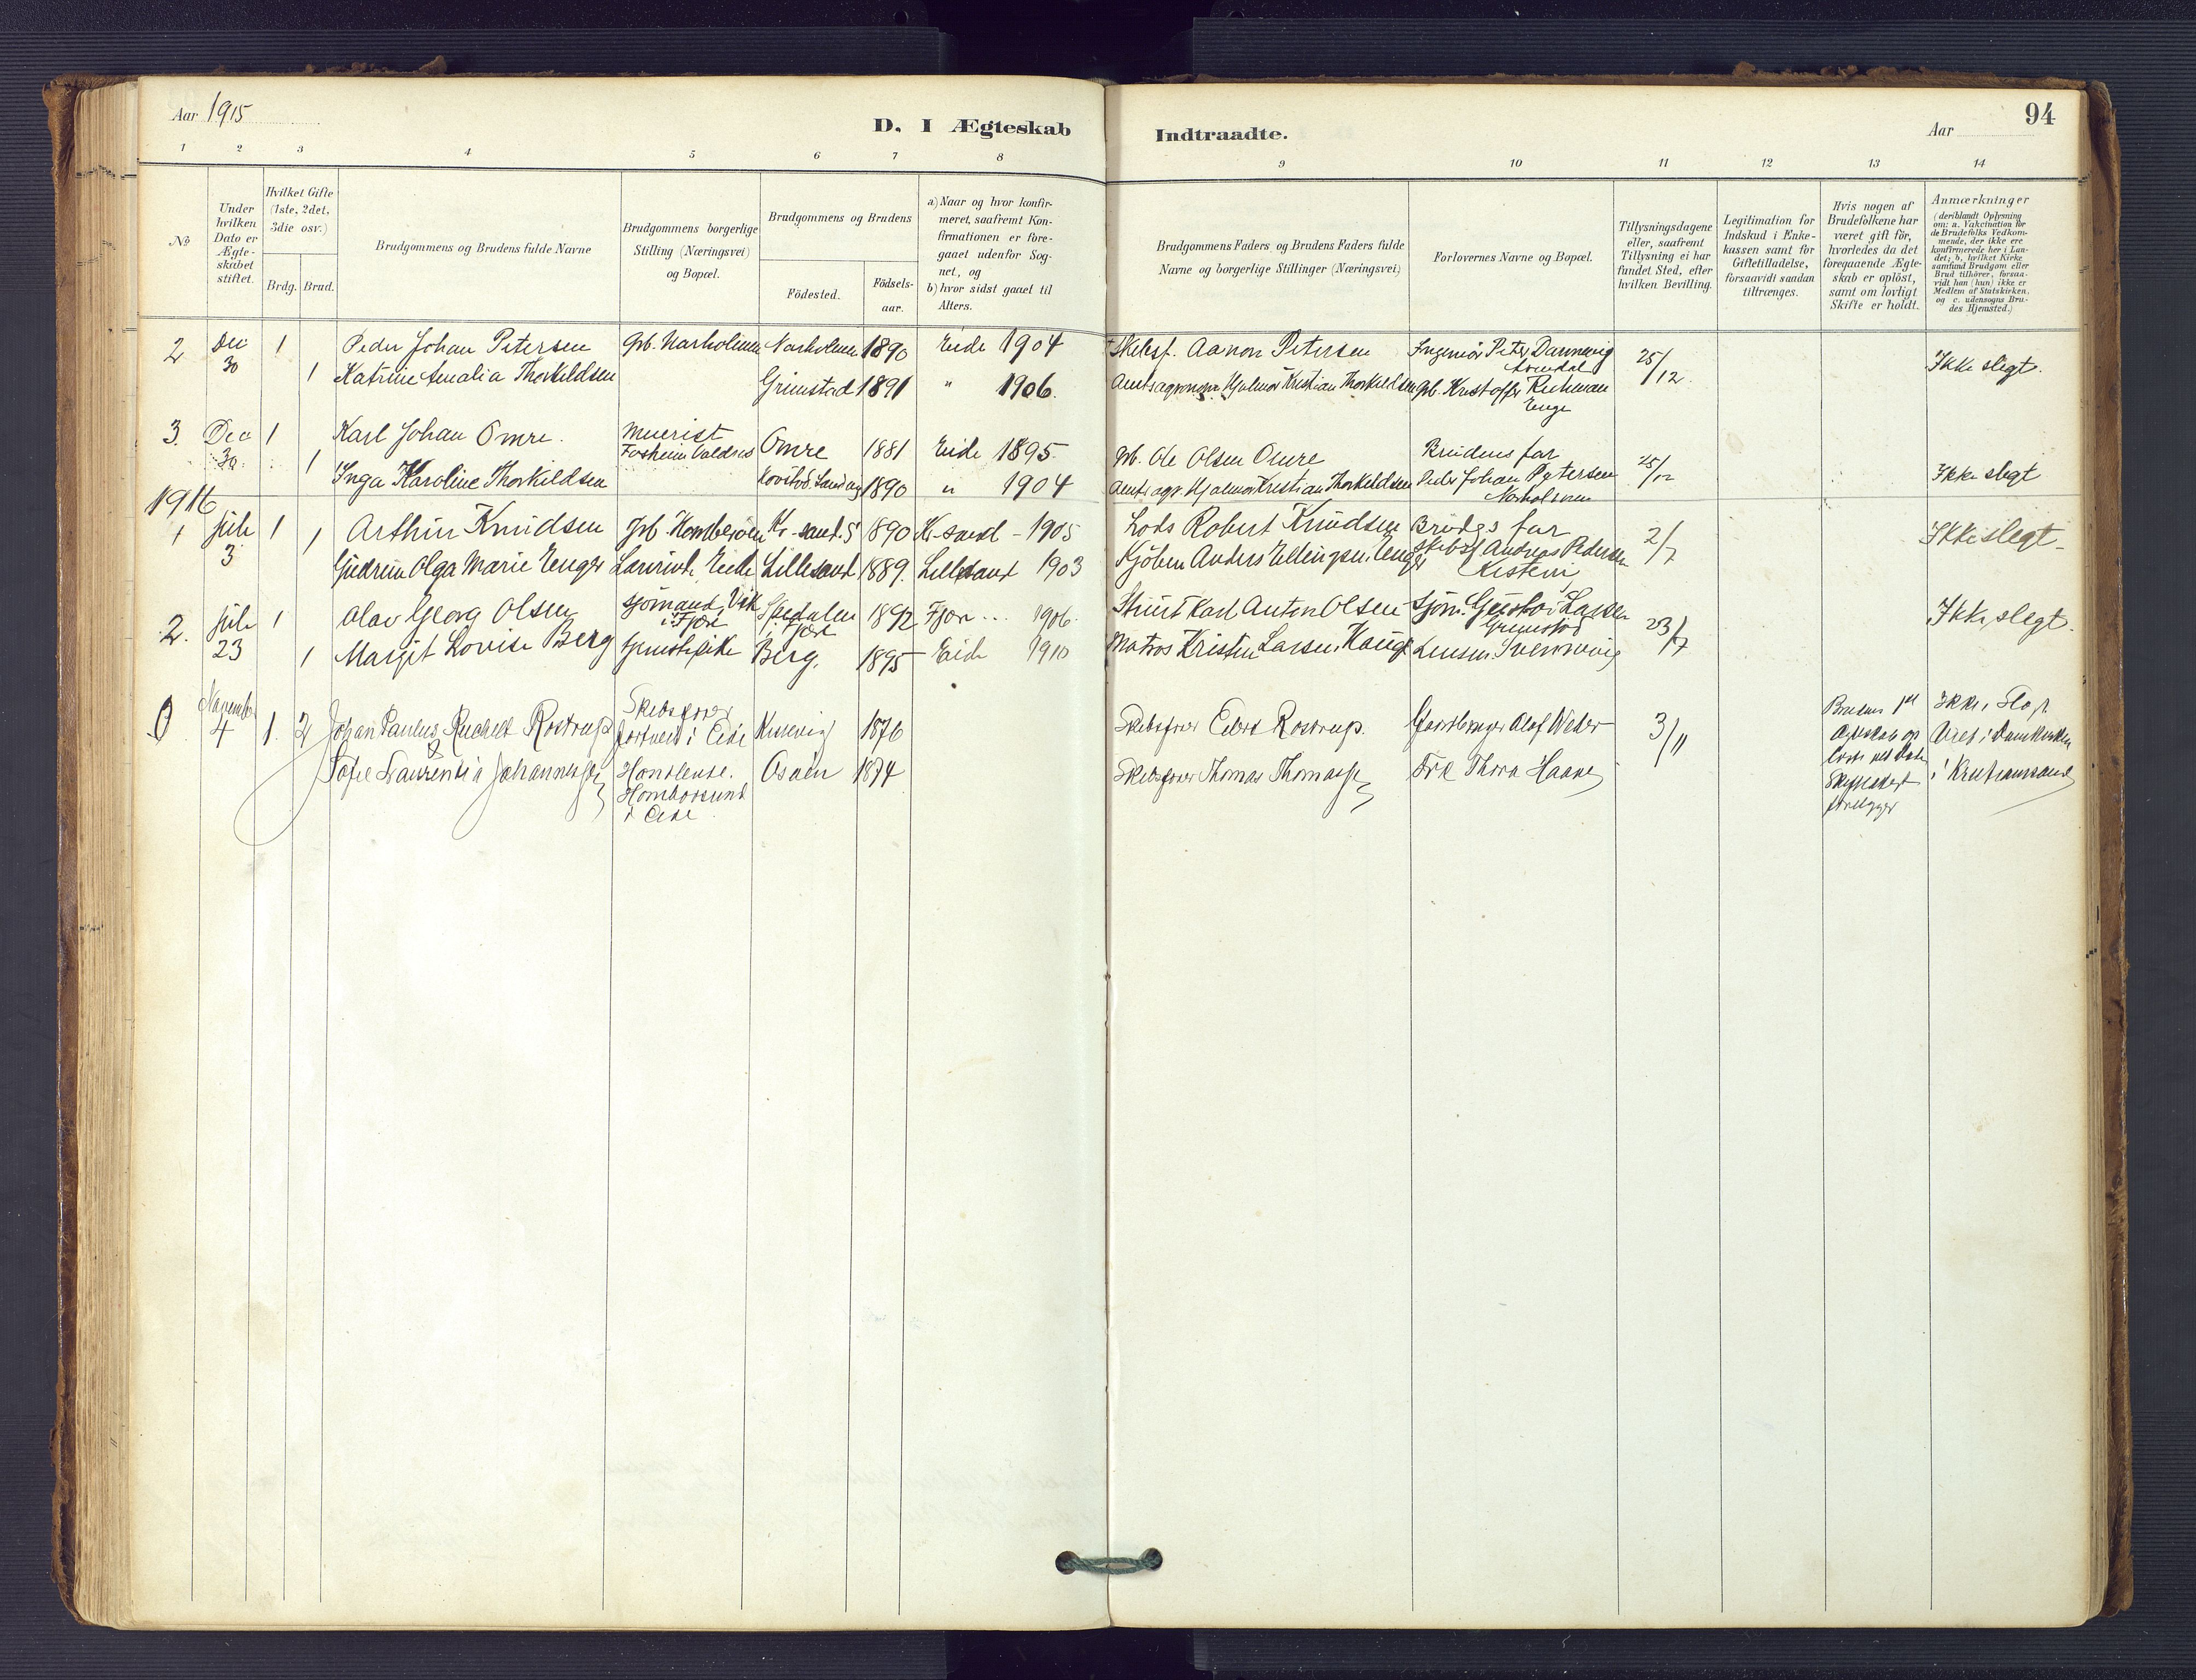 Aar 1915
D. I Ægteskab
Indtraadte.
94
Aar
1 2 3 4 5 6 7 8 9 10 11 12 13 14
No
Under
hvilken
Dato er
Ægte-
skabet
stiftet.
Hvilket Gifte
(1ste, 2det,
3die osv.)
Brdg. Brud.
Brudgommens og Brudens fulde Navne
Brudgommens borgerlige
Stilling (Næringsvei)
og Bopæl.
Brudgommens og Brudens
Födested.
Födsels-
aar.
a) Naar og hvor konfir-
meret, saafremt Kon-
firmationen er fore-
gaaet udenfor Sog-
net, og
b) hvor sidst gaaet til
Alters.
Brudgommens Faders og Brudens Faders fulde
Navne og borgerlige Stillinger (Næringsvei)
Forlovernes Navne og Bopæl.
Tillysningsdagene
eller, saafremt
Tillysning ei har
fundet Sted, efter
hvilken Bevilling.
Legitimation for
Indskud i Enke-
kassen samt for
Giftetilladelse,
forsaavidt saadan
tiltrænges.
Hvis nogen af
Brudefolkene har
været gift för,
hvorledes da det
foregaaende Ægte-
skab er oplöst,
samt om lovligt
Skifte er holdt.
Anmærkninger
(deriblandt Oplysning
om: a. Vakcination for
de Brudefolks Vedkom-
mende, der ikke ere
konfirmerede her i Lan-
det; b. hvilket Kirke
samfund Brudgom eller
Brud tilhörer, forsaa-
vidt han (hun) ikke er
Medlem af Statskirken,
og c. udensogns Bru-
des Hjemsted.)
2 Dec 30 1 Peder Johan Petersen Gb. Narholmen Narholmen 1890 Eide 1904 Skibsf. Aanon Petersen Ingeniör Peter Dannevig Arendal 25/12 Ikke slegt.
1 Katrine Amalia Thorkildsen Grimstad 1891 " 1906. Amtsagronom Hjalmar Kristian Thorkildsen Gb. Kristoffer
3. Dec 30. 1 Karl Johan Omre. Meierist Omre 1881 Eide 1895. Gb. Ole Olsen Omre Brudens far 25/12 Ikke slegt
1 Inga Karoline Thorkildsen 1890 " 1904 Amtsagr. Hjalmar Kristian Thorkildsen Peder Johan Petersen Narholmen
1916
1 juli 3 1 Arthur Knudsen Kr-sand. S 1890 Kr-sand - 1905 Lods Robert Knudsen Brudgs far 2/7 Ikke slegt.
1 Gudrun Olga Marie Enger Eide Lillesand 1889. Lillesand 1903 Kjöbm Anders Ellingsen Enger Skibsf Andreas Pedersen
2. juli 23 1 Olav Georg Olsen sjömand, Vik i Fjære i Fjære 1892 Fjære 1906. Stuert Karl Anton Olsen Sjöm. Gustav Larsen Grimstad 23/7 Ikke slegt.
1 Margit Lovise Berg Berg. 1895 Eide 1910 Matros Kristen Larsen
November 4 1. 2 Johan Paulus Rostrup Skibsförer i Eide 1876 Skibsförer Edvard Rostrup. Olaf Weber 3/11 Brudens 1st Ikke i Slegt.
Ægteskab op Viet i Domkirken
& Sofie Laurentia Johannessen Homborsund i Eide Osalen 1874 Skibsförer Thomas Thomassen Frk Thora Haave i Kristianssand